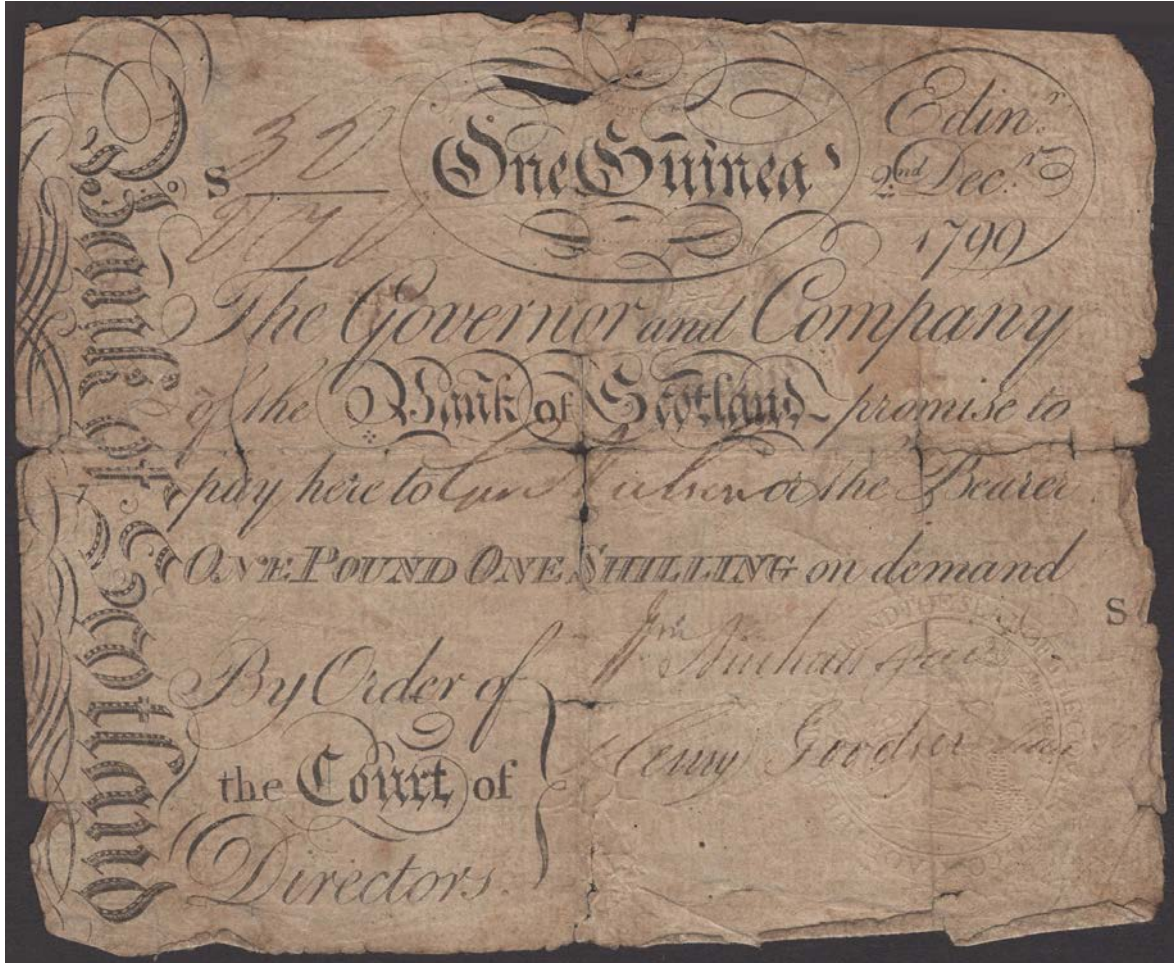 Bank of Scotland
S
One Guinea
Edin.r
2nd Dec.r
1799
The Governor and Company
of the Bank of Scotland promise to
pay here to or the Bearer
ONE POUND ONE SHILLING on demand
S
By Order of
the Court of
Directors.
Henry Goodsir